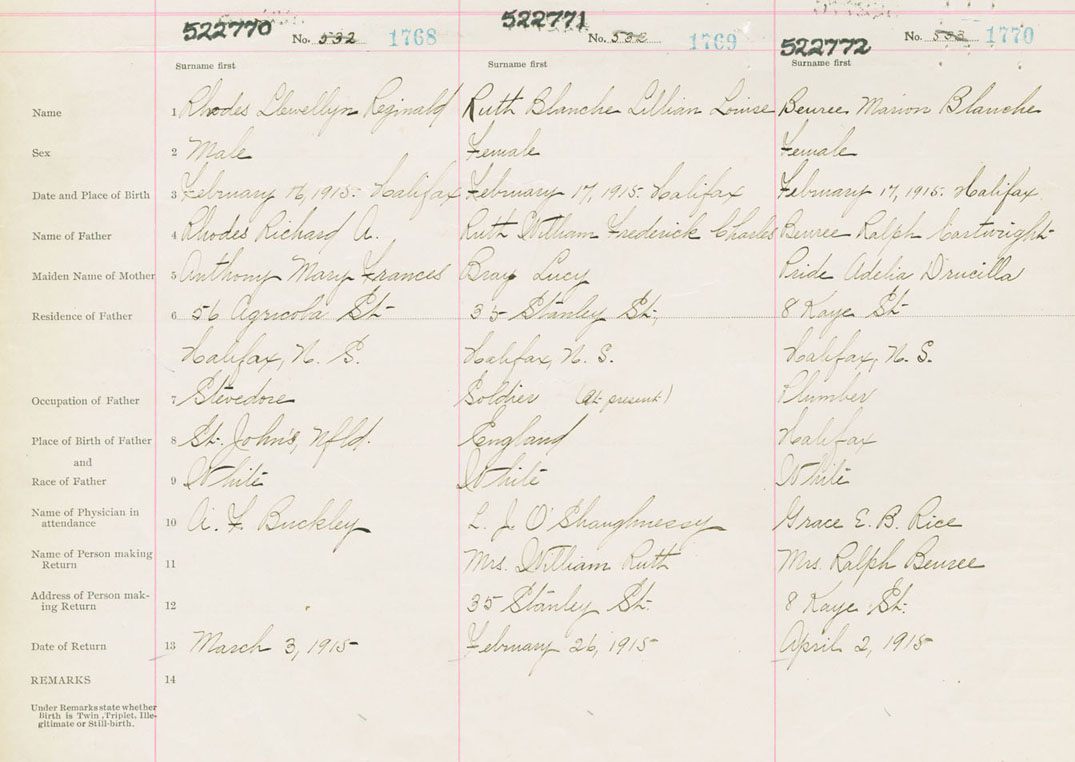 522770 No. 532 1768 522771 No. 532 1769 522772 No. 533 1770
Surname first Surname first Surname first
Name 1 Rhodes Llewellyn Reginald Ruth Blanche Lillian Louise Beuree Marion Blanche
Sex 2 Male Female Female
Date and Place of Birth 3 February 16, 1915. Halifax February 17, 1915. Halifax February 17, 1915. Halifax
Name of Father 4 Rhodes Richard A. Ruth William Frederick Charles Beuree Ralph Cartwright
Maiden Name of Mother 5 Anthony Mary Frances Bray Lucy Pride Adelia Drucilla
Residence of Father 6 56 Agricola St. 35 Stanley St. 8 Kaye St
Halifax, N. S. Halifax, N. S. Halifax, N. S.
Occupation of Father 7 Stevedore Soldier (At present) Plumber
Place of Birth of Father 8 St. John's, Nfld. England Halifax
and
Race of Father 9 White White White
Name of Physician in
attendance 10 A. F. Buckley L. J. O'Shaughnessy Grace E. B. Rice
Name of Person making
Return 11 Mrs. William Ruth Mrs. Ralph Beuree
Address of Person mak-
ing Return 12 35 Stanley St. 8 Kaye St.
Date of Return 13 March 3, 1915 February 26, 1915 April 2, 1915
REMARKS 14
Under Remarks state whether
Birth is Twin, Triplet, Ille-
gitimate or Still-birth.